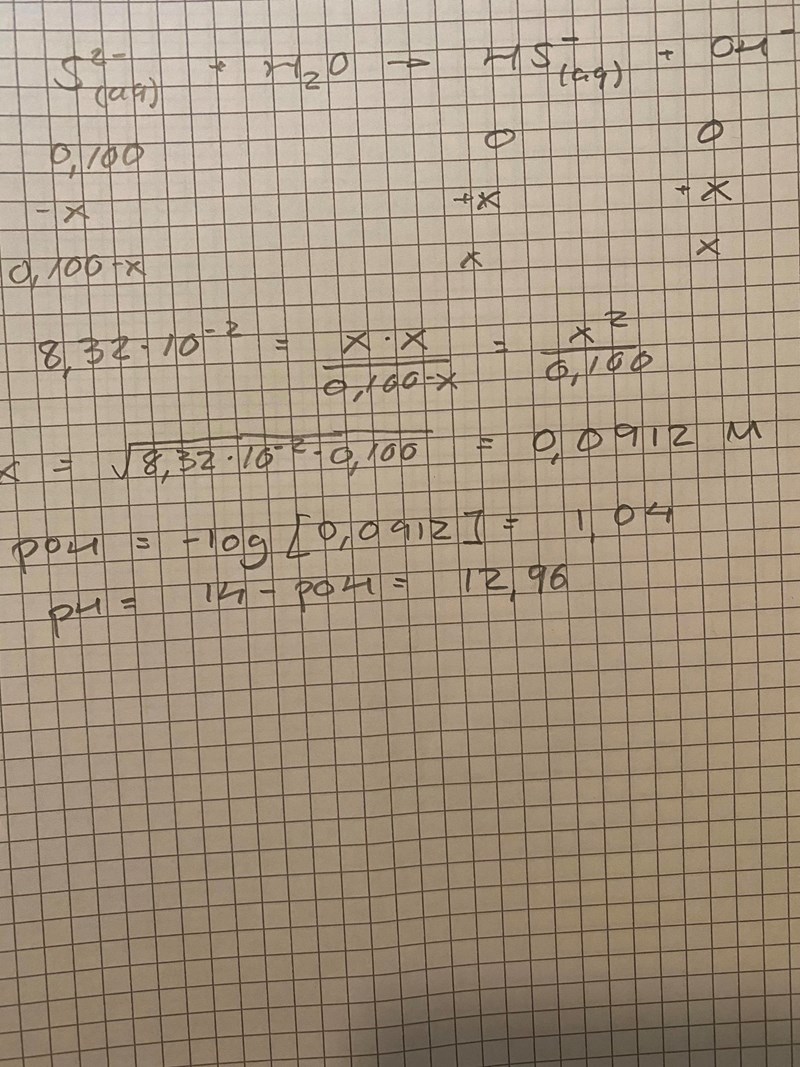 S²⁻(aq) + H₂O → HS⁻(aq) + OH⁻
0,100 0 0
-x +x +x
0,100-x x x
8,32·10⁻² = x·x / 0,100-x = x² / 0,100
x = √8,32·10⁻²·0,100 = 0,0912 M
pOH = -log [0,0912] = 1,04
pH = 14 - pOH = 12,96